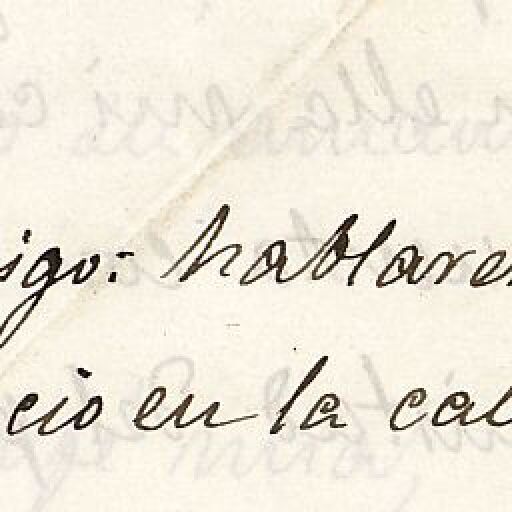 igo: hablare
cio en la cal